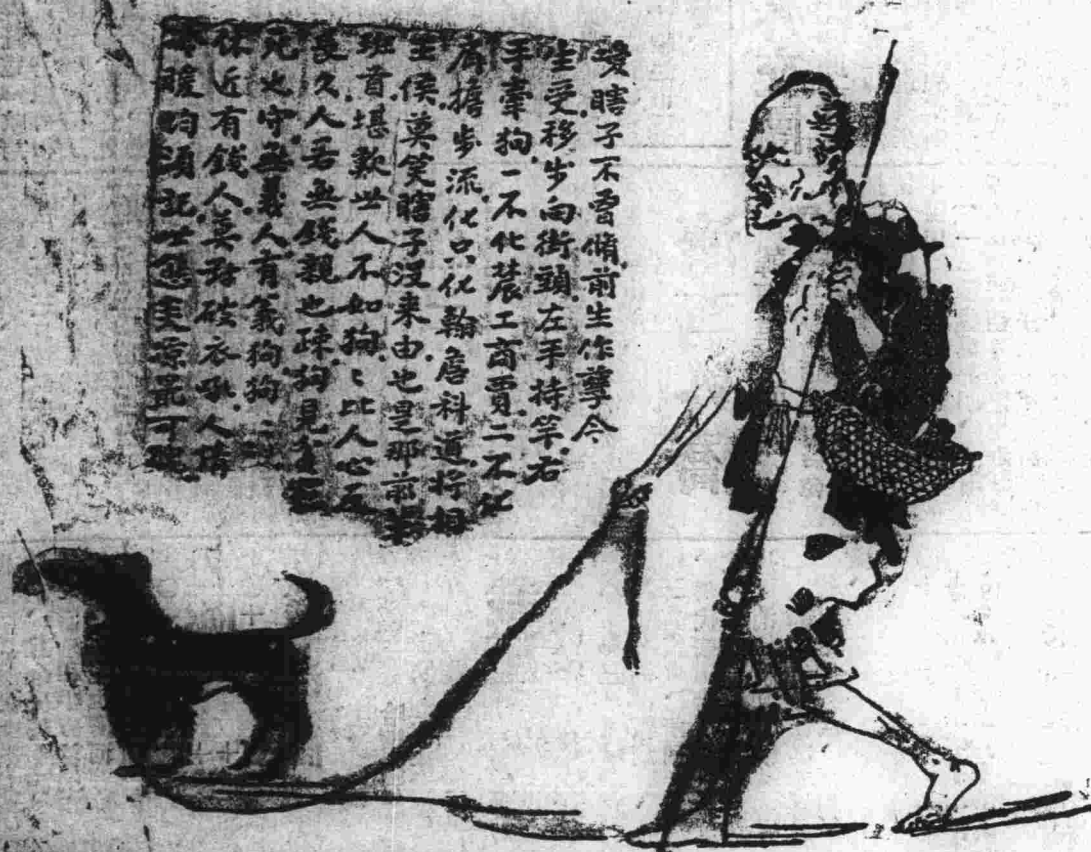 瞎子不曾脩前生作孽今
生受移步向街頭左手持竿右
手牽狗一不化農工商賈二不化
肩擔步流化只化翰詹科道将相
王侯莫笑瞎子没来由也是那前輩
班首堪歎世人不如狗〻比人心反
長久人若無錢親也疎狗見貧主
死也守無義人有義狗狗
休近有錢人莫破衣吼人情
暖狗須記世態炎凉最可